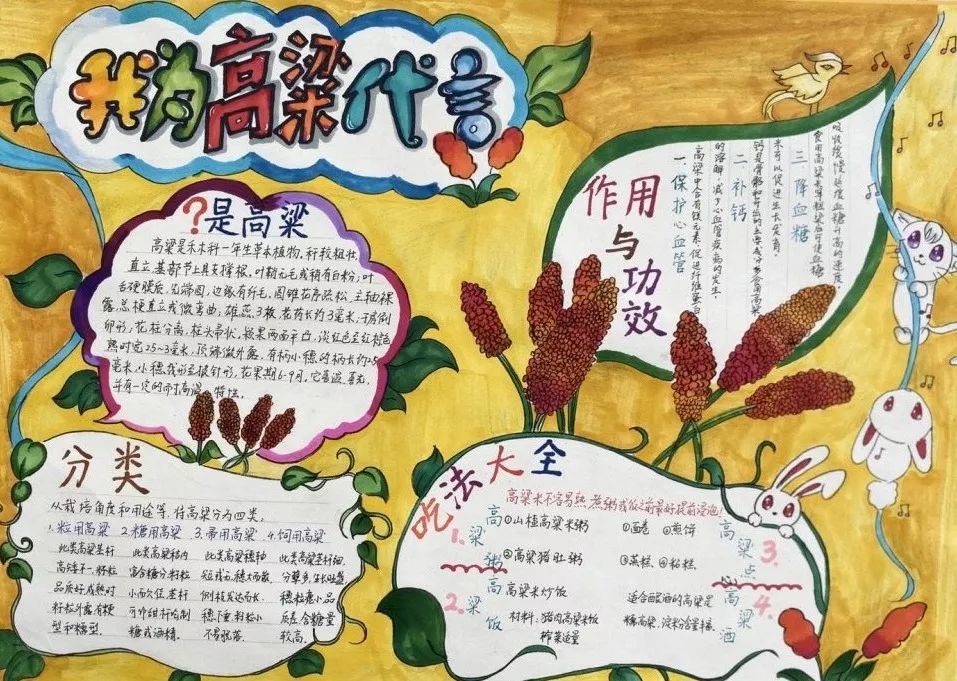 我为高粱代言
?是高粱
高粱是禾本科一年生草本植物，秆较粗壮，
直立，基部节上具支撑根。叶鞘无毛或稍有白粉；叶
舌硬膜质，先端圆，边缘有纤毛。圆锥花序疏松，主轴裸
露，总梗直立或微弯曲。雄蕊3枚，花药长约3毫米，子房倒
卵形，花柱分离，柱头帚状。颖果两面平凸，淡红色至红棕色
熟时宽2.5~3毫米，顶端微外露。有柄小穗的柄长约2.5
毫米，小穗线形至披针形，花果期6-9月。它喜温、喜光，
并有一定的耐高温特性。
分类
从栽培角度和用途等，将高粱分为四类。
1.粒用高粱 2.糖用高粱 3.帚用高粱 4.饲用高粱
此类高粱茎秆 此类高粱秸内 此类高粱穗种 此类高粱茎秆细
高矮不一，籽粒 富含糖分，籽粒 短或无，穗大而散 分蘖多，生长旺盛
品质好，成熟时 小而欠佳，茎秆 侧枝发达而长 穗粒蕞小，品
籽粒外露，有粳 可作甜秆，制 穗下垂，籽粒小 质差，含糖量
型和糯型。 糖或酒精。 不易脱落。 较高。
作用与功效
一、保护心血管
高粱中含有镁元素，促进纤维蛋白
的溶解，减少心血管疾病的发生
二、补钙
钙是骨骼和牙齿的主要成分，多食用高粱
米可以促进生长发育。
三、降血糖
食用高粱米等粗粮后可使血糖
吸收缓慢，延缓血糖升高的速度
吃法大全
高粱米不容易熟，煮粥或做饭之前最好提前浸泡！
1.高粱粥
①山楂高粱米粥
②高粱猪肚粥
2.高粱饭
高粱米炒饭
材料：猪肉高粱米饭
榨菜适量
3.高粱点
①面卷 ②煎饼
③蒸糕 ④粘糕
4.高粱酒
适合酿酒的高粱是
糯高粱，淀粉含量丰富